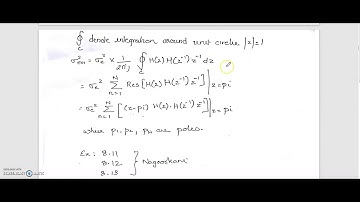 ∮ denote integration around unit circle |z|=1
C
σ²eon = σe² × 1/2πj ∮C H(z) H(z⁻¹) z⁻¹ dz
= σe² Σ(n=1 to N) Res[H(z) H(z⁻¹) z⁻¹] |z=pi
= σe² Σ(n=1 to N) [(z-pi) H(z) · H(z⁻¹) z⁻¹] |z=pi
where p1, p2, pn are poles.
Ex: 8.11
8.12 } Nagoorkani
8.13